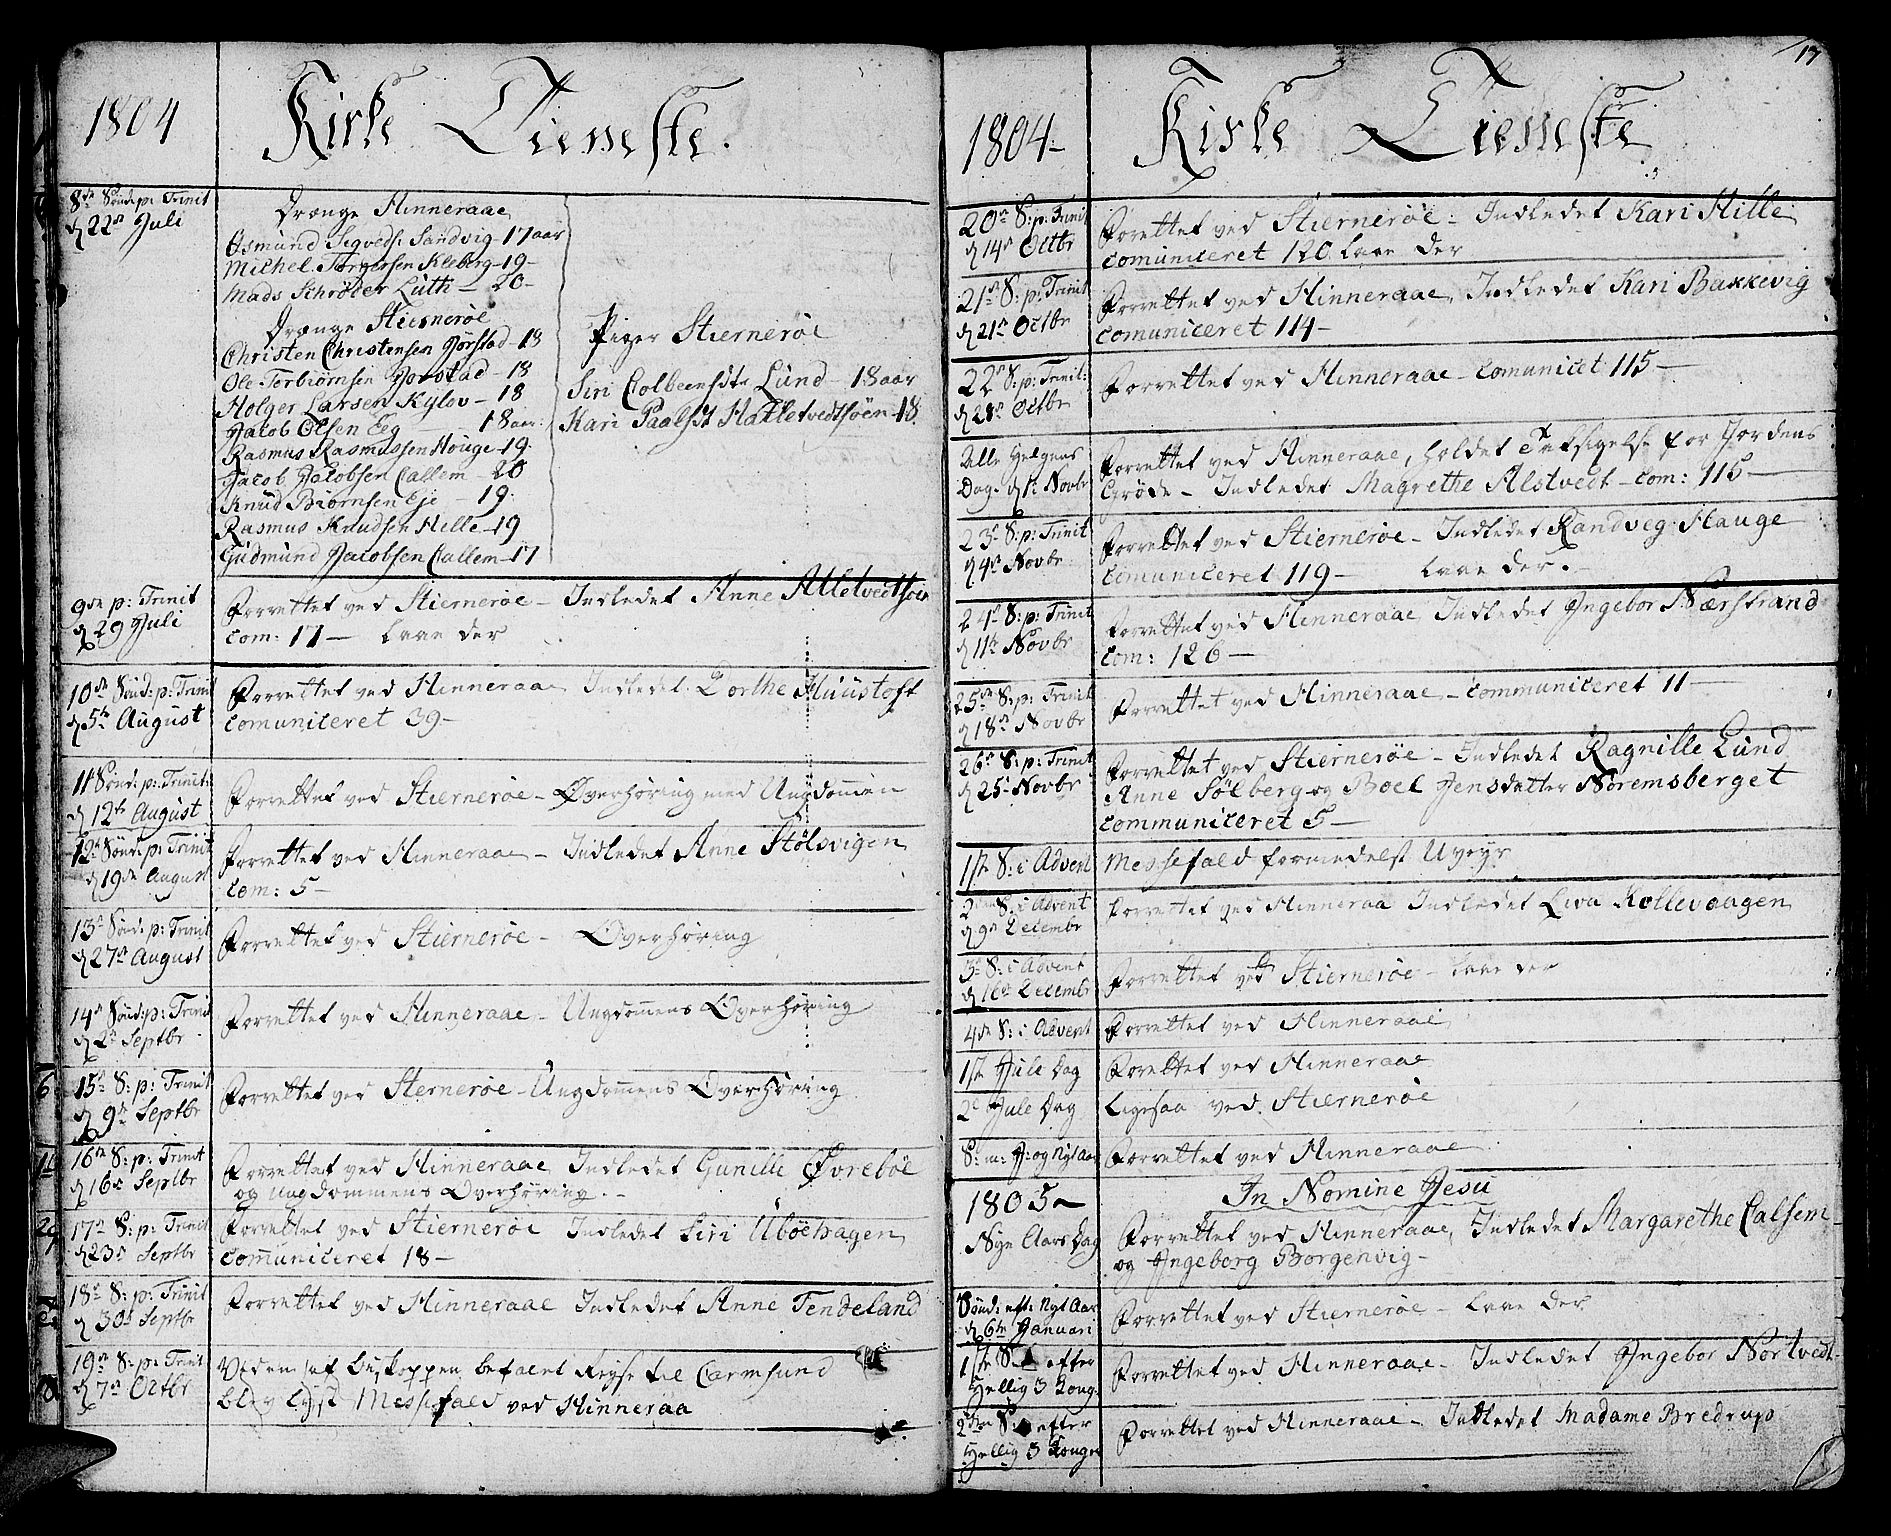 1804
Kirke Tieneste.
8de Sønd: p: Trinit
d 22de Juli
Drænge Hinneraae
Osmund Sigveds: Sandvig - 17 aar
Michel Torgersen Kleberg - 19 -
Mads Schrøder Lütti - 20 -
Drænge Stiernerøe
Christen Christensen Jørstad - 18
Ole Torbiørnsen Jørstad - 18
Holger Larsen Kylov - 18
Jacob Olsen Eeg 18 aar
Rasmus Rasmussen Houge - 19
Jacob Jacobsen Callem - 20
Knud Biørnsen Eje - 19
Rasmus Knudsen Helle - 19
Gudmund Jacobsen Callem - 17
Piger Stiernerøe
Siri Colbeensdtr Lund - 18 aar
Kari Paalsdt Hatletvedtsøen - 18
9de p: Trinit
d 29 Juli
Forrettet ved Stiernerøe - Indledet Anne Atletvedtsøen
Com: 17 - laae der
10de Sønd: p: Trinit
d 5te August
Forrettet ved Hinneraae Indledet Dorthe Huustoft
Comuniceret 39 -
11 Sønd: p: Trinit:
d 12te August
Forrettet ved Stiernerøe - Overhøring med Ungdomen
12te Sønd: p: Trinit
d 19de August
Forrettet ved Hinneraae - Indledet Anne Stølsvigen
Com: 5 -
13de Sønd: p: Trinit
d 27de August
Forrettet ved Stiernerøe - Overhøring
14de Sønd: p: Trinit
d 2de Septbr
Forrettet ved Hinneraae - Ungdomens Overhøring
15de S: p: Trinit
d 9de Septbr
Forrettet ved Sternerøe - Ungdomens Overhøring
16de S: p: Trinit
d 16de Septbr
Forrettet ved Hinneraae Indledet Gunille Øvrebøe
og Ungdommens Overhøring. -
17de S: p: Trinit
d 23de Septbr
Forrettet ved Stiernerøe Indledet Siri Uboehagen
Comuniceret 18 -
18de S: p: Trinit
d 30de Septbr
Forrettet ved Hinneraae Indledet Anne Tendeland
19de S: p: Trinit
d 7de Octbr
Ved en af Biskoppen befalet Reyse til Carmsund
blev lyst Messefald ved Hinneraa
17
1804 -
Kirke Tieneste
20de S: p: Trinit
d 14de Octbr
Forettet ved Stiernerøe - Indledet Kari Hille
Comuniceret 120 laae der
21de S: p: Trinit
d 21de Octbr
Forrettet ved Hinneraae, Indledet Kari Bakkevig
Comuniceret 114 -
22de S: p: Trinit:
d 28de Octbr
Forrettet ved Hinneraae - Comunicet 115 -
Alle Helgens
Dag d 1te Novbr
Forrettet ved Hinneraae, holdet Taksigelse for Jordens
Grøde - Indledet Magrethe Alstvedt - Com: 115 -
23de S: p: Trinit
d 4de Novbr
Forrettet ved Stiernerøe - Indledet Randveg Hauge
Comuniceret 119 - laae der. -
24de S: p: Trinit
d 11te Novbr
Forrettet ved Hinneraae Indledet Ingebor Nærstrand
Com: 126 -
25de S: p: Trinit
d 18de Novbr
Forrettet ved Hinneraae - Communiceret 11 -
26de S: p: Trinit
d 25de Novbr
Forrettet ved Stiernerøe - Indledet Ragnille Lund
Anne Sølberg og Boel Jensdatter Nøremsberget
Communiceret 5 -
1ste S: i Advent
Messefald formedelst Uveyr
2den S: i Advent
d 9de Decembr
Forrettet ved Hinneraa Indledet Liva Kollevaagen
3de S: i Advent
d 16de Decembr
Forrettet ved Stiernerøe - laae der
4de S: i Advent
Forrettet ved Hinneraae
1ste Jule Dag
Forettet ved Hinneraae
2de Jule Dag
Ligesaa ved Stiernerøe
S: m: J: og Nyt Aar
Forrettet ved Hinneraae
1805 -
In Nomine Jesu
Nye Aars Dag
Forrettet ved Hinneraae, Indledet Margarethe Calsem
og Ingeborg Borgenvig -
Sønd: eft: Nyt Aar
d 6te Januari
Forrettet ved Stiernerøe - laae der
1ste S: efter
Hellig 3 Kong:
Forrettet ved Hinneraae - Indledet Ingebor Nortvedt
2den S: efter
Hellig 3 Konger
Forrettet ved Hinneraae - Indledet Madame Bredrup